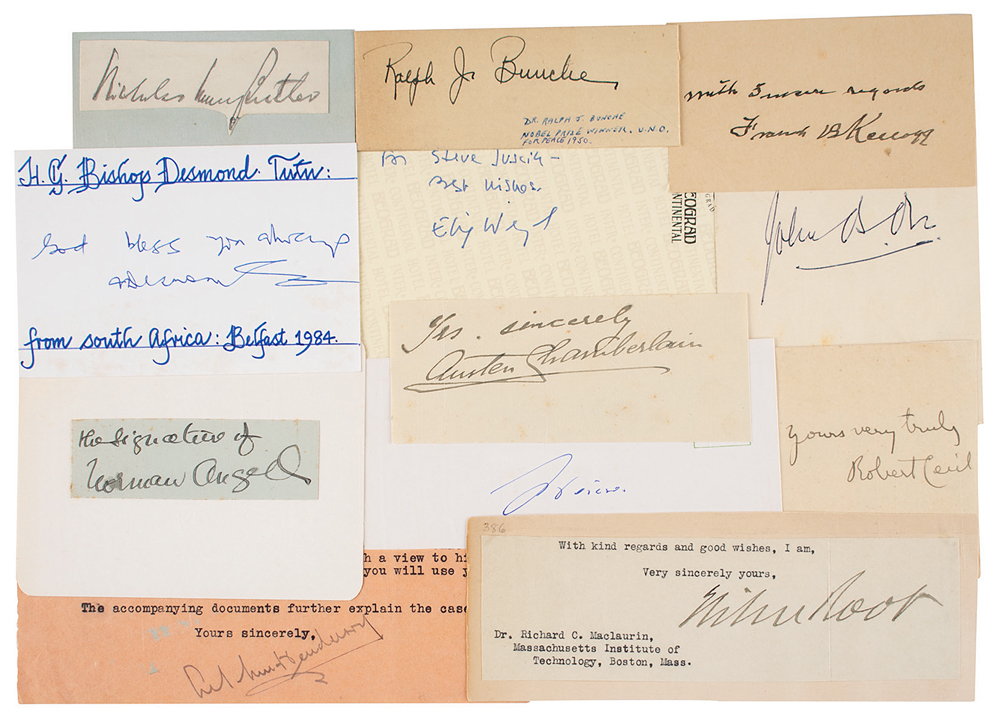 Nicholas Murray Butler
Ralph J. Bunche
DR. RALPH J. BUNCHE
NOBEL PRIZE WINNER, U.N.O.
FOR PEACE 1950.
with sincere regards
Frank B Kellogg
H. G. Bishop Desmond Tutu:
God bless you always
Desmond
from south Africa: Belfast 1984.
Steve
Best wishes
Elie Wiesel
EOGRAD
NTINENTAL
John B. Orr.
Yrs. sincerely
Austen Chamberlain
the signature of
Norman Angell
yours very truly
Robert Cecil
386
With kind regards and good wishes, I am,
Very sincerely yours,
Elihu Root
Dr. Richard C. Maclaurin,
Massachusetts Institute of
Technology, Boston, Mass.
h a view to hi
you will use y
The accompanying documents further explain the case
Yours sincerely,
Arthur Henderson